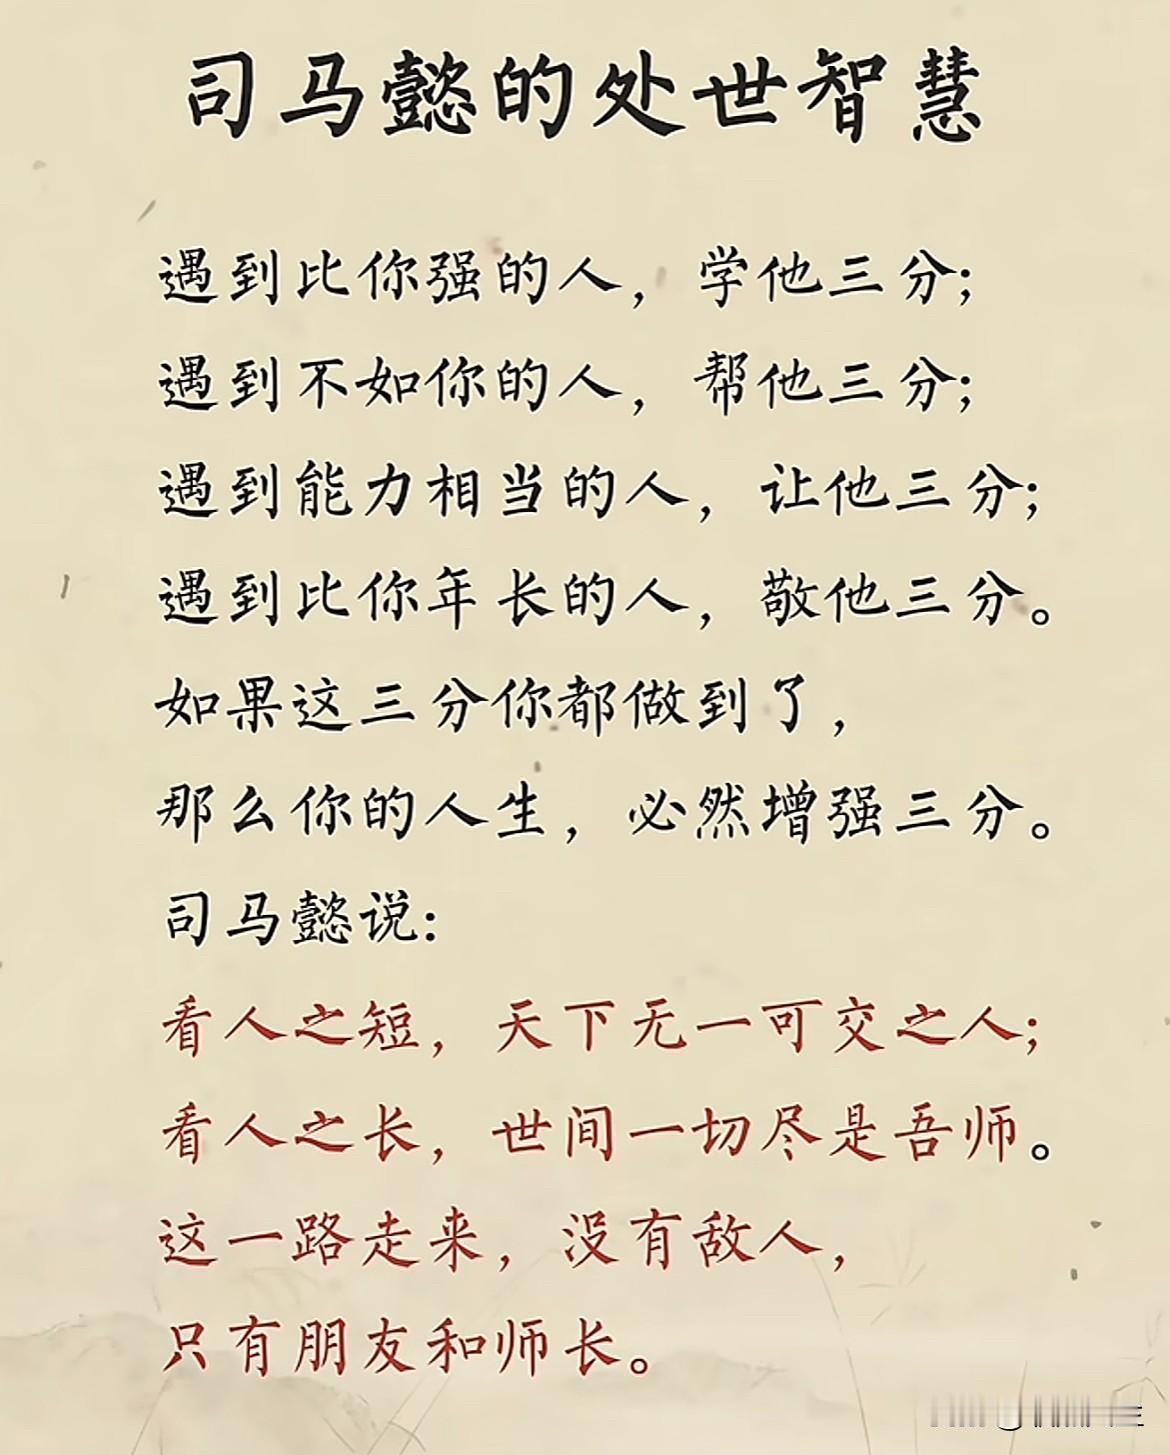 司马懿的处世智慧
遇到比你强的人，学他三分；
遇到不如你的人，帮他三分；
遇到能力相当的人，让他三分；
遇到比你年长的人，敬他三分。
如果这三分你都做到了，
那么你的人生，必然增强三分。
司马懿说：
看人之短，天下无一可交之人；
看人之长，世间一切尽是吾师。
这一路走来，没有敌人，
只有朋友和师长。